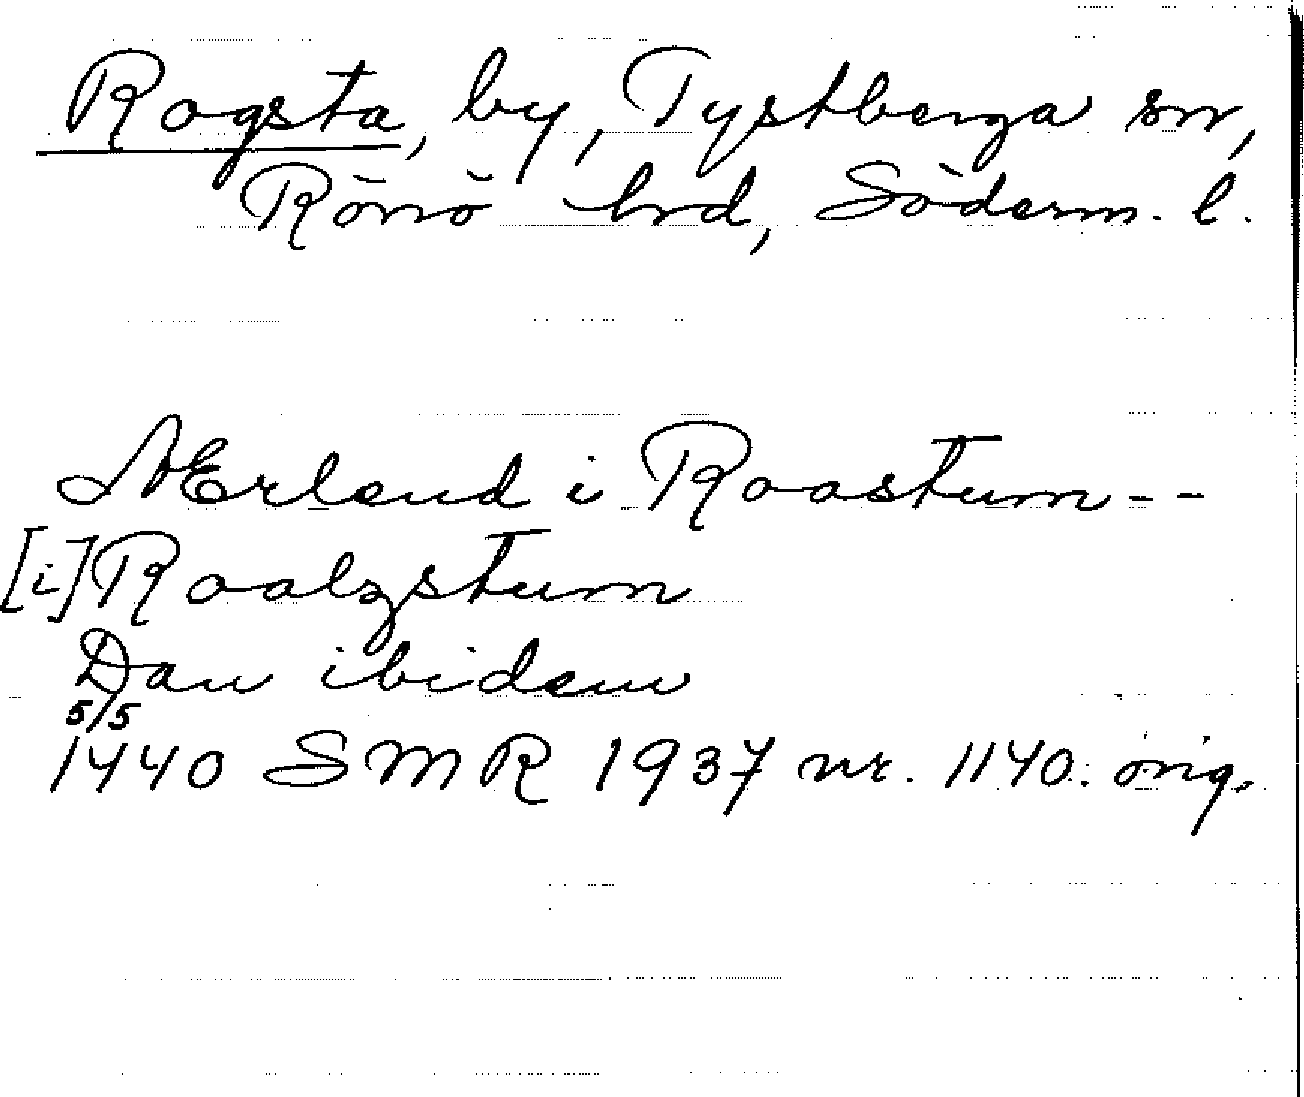 Rogsta, by, Tystberga sn,
Rönö hrd, Söderm. l.
AErlend i Roastum--
[i] Roalzstum
Dan ibidem
5/5
1440 SMR 1937 nr. 1140. orig.